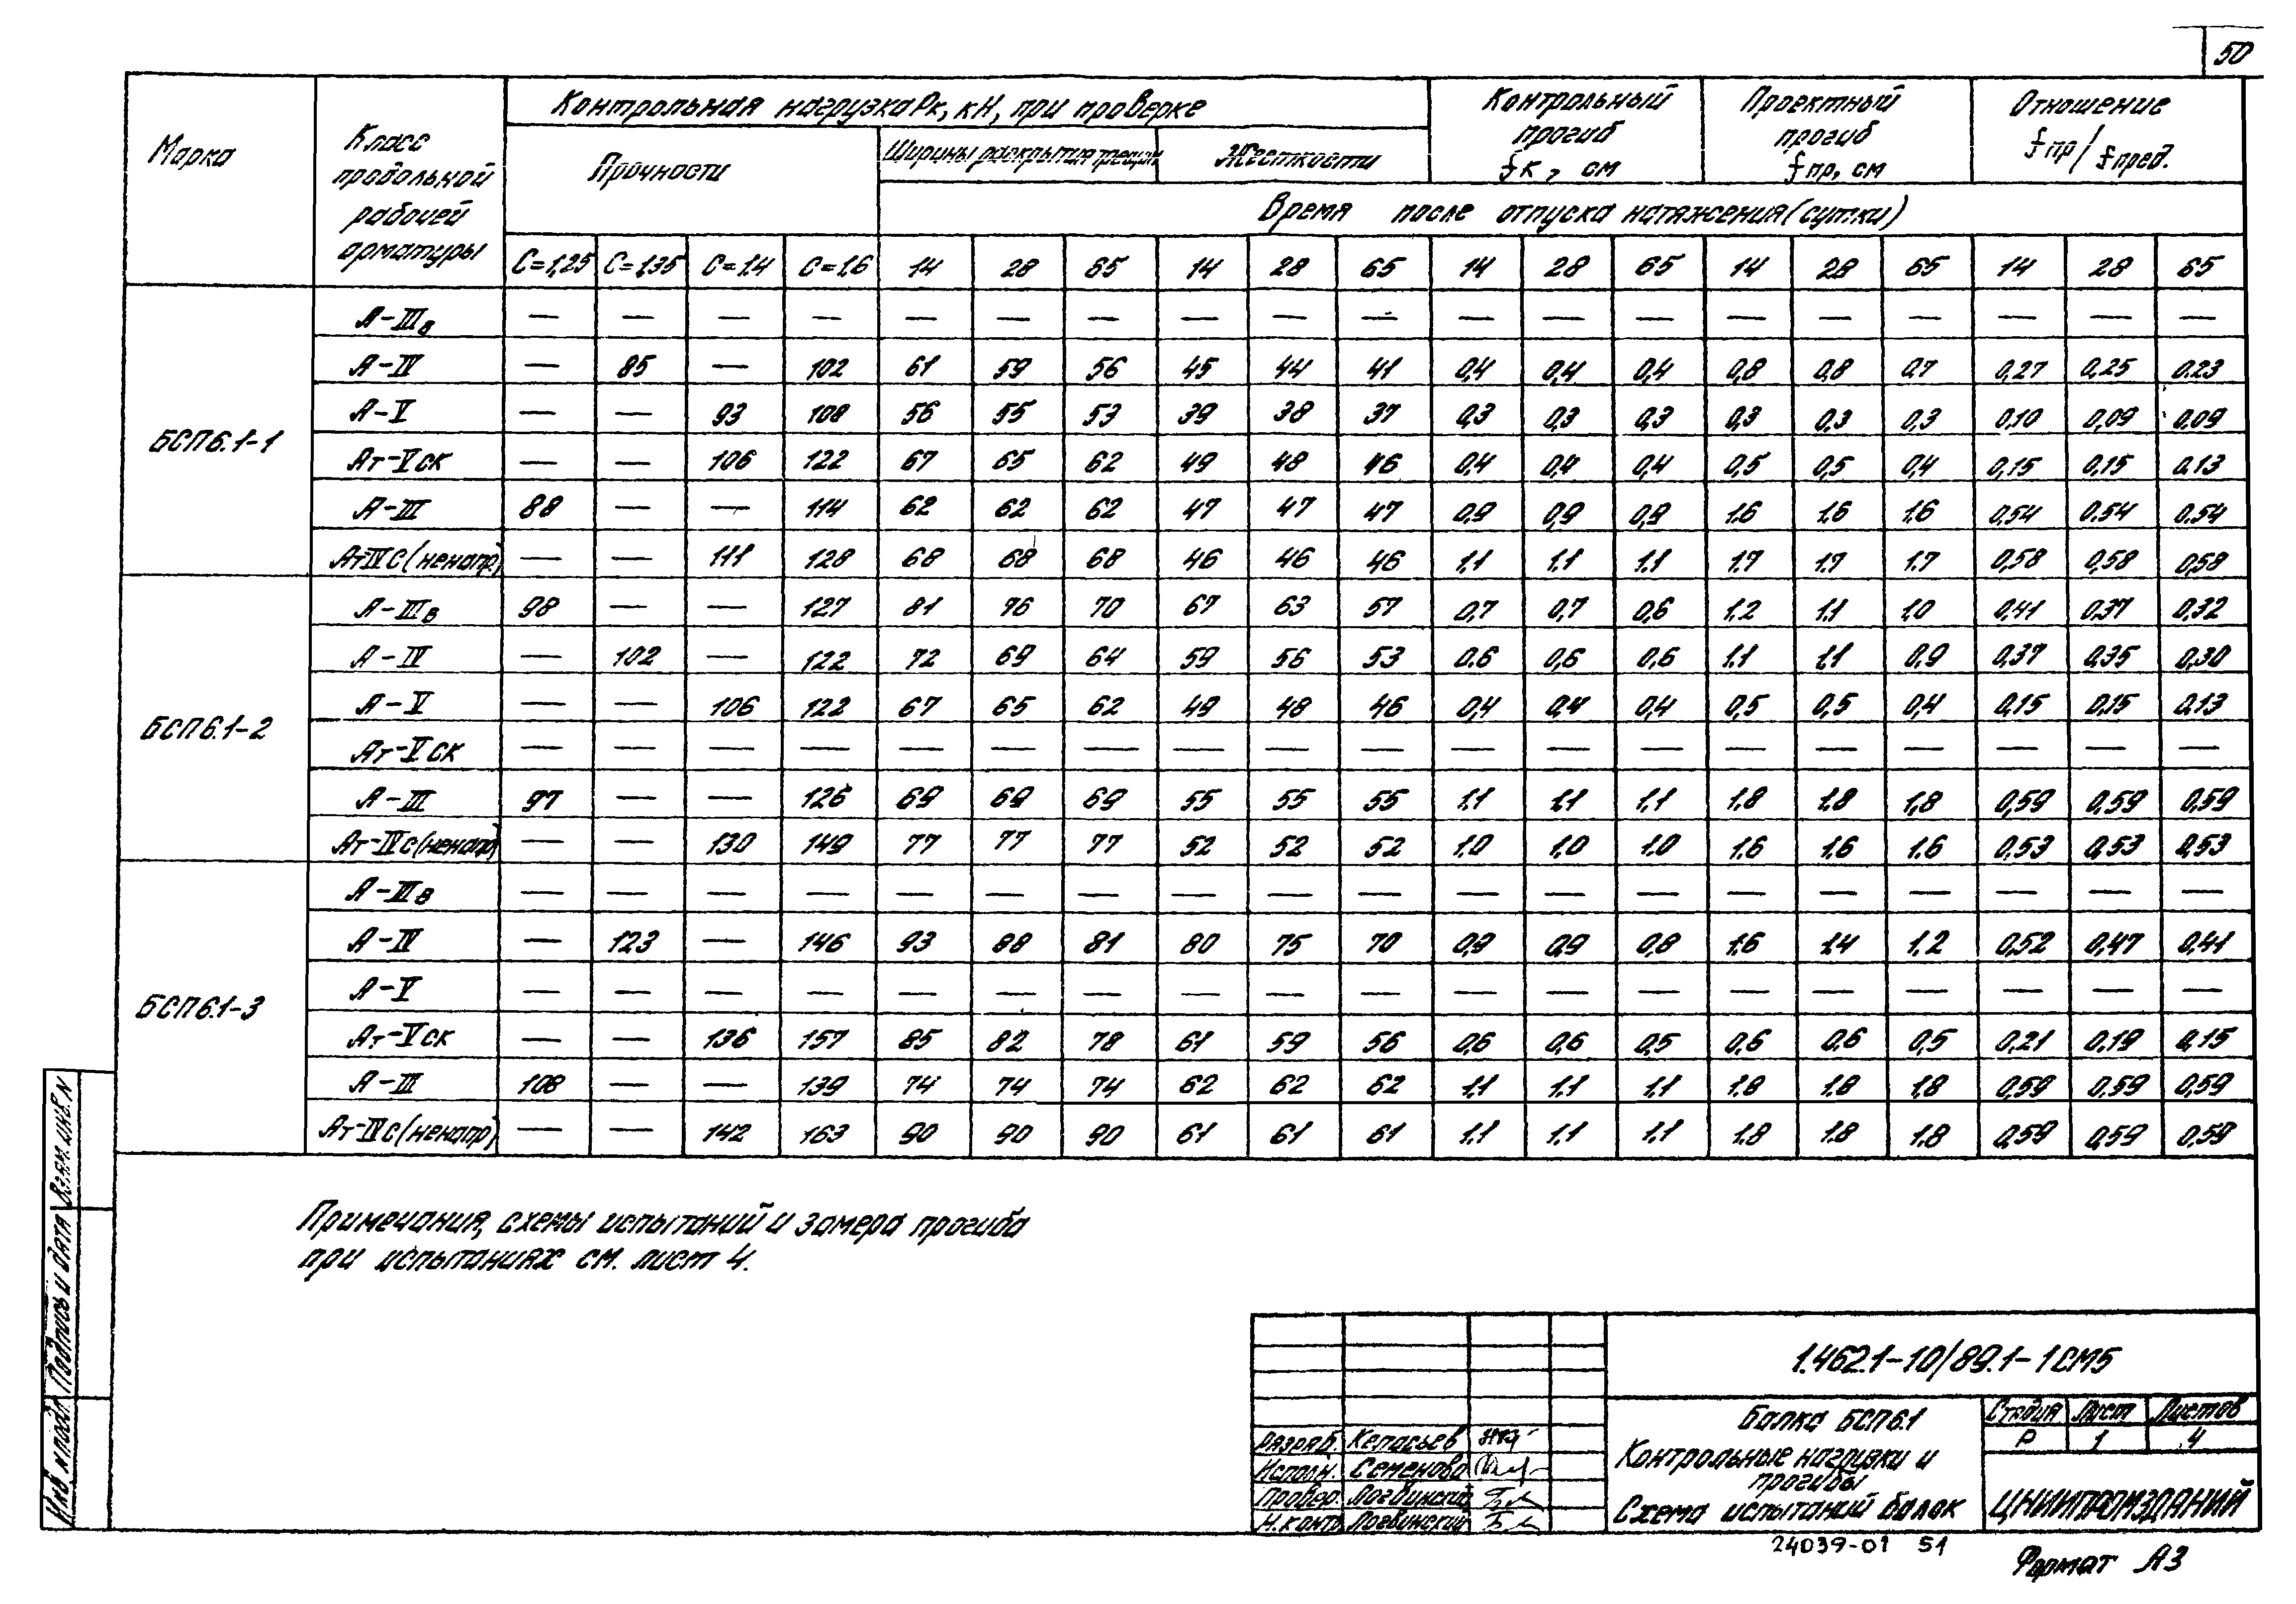 50
Марка
Класс продольной рабочей арматуры
Контрольная нагрузка Рк, кН, при проверке
Контрольный прогиб fк, см
Проектный прогиб fпр, см
Отношение fпр/fпред.
Прочности
Ширины раскрытия трещин
Жесткости
Время после отпуска натяжения (сутки)
С=1,25 С=1,35 С=1,4 С=1,6 14 28 65 14 28 65 14 28 65 14 28 65 14 28 65
БСП6.1-1
А-IIIв — — — — — — — — — — — — — — — — — — —
А-IV — 85 — 102 61 59 56 45 44 41 0,4 0,4 0,4 0,8 0,8 0,7 0,27 0,25 0,23
А-V — — 93 108 56 55 53 39 38 37 0,3 0,3 0,3 0,3 0,3 0,3 0,10 0,09 0,09
Ат-Vск — — 106 122 67 65 62 49 48 46 0,4 0,4 0,4 0,5 0,5 0,4 0,15 0,15 0,13
А-III 88 — — 114 62 62 62 47 47 47 0,9 0,9 0,9 1,6 1,6 1,6 0,54 0,54 0,54
Ат IV С (ненапр.) — — 111 128 68 68 68 46 46 46 1,1 1,1 1,1 1,7 1,7 1,7 0,58 0,58 0,58
БСП6.1-2
А-IIIв 98 — — 127 81 76 70 67 63 57 0,7 0,7 0,6 1,2 1,1 1,0 0,41 0,37 0,32
А-IV — 102 — 122 72 69 64 59 56 53 0,6 0,6 0,6 1,1 1,1 0,9 0,37 0,35 0,30
А-V — — 106 122 67 65 62 49 48 46 0,4 0,4 0,4 0,5 0,5 0,4 0,15 0,15 0,13
Ат-V ск — — — — — — — — — — — — — — — — — — —
А-III 97 — — 126 69 69 69 55 55 55 1,1 1,1 1,1 1,8 1,8 1,8 0,59 0,59 0,59
Ат-IVс (ненапр) — — 130 149 77 77 77 52 52 52 1,0 1,0 1,0 1,6 1,6 1,6 0,53 0,53 0,53
БСП6.1-3
А-IIIв — — — — — — — — — — — — — — — — — — —
А-IV — 123 — 146 93 88 81 80 75 70 0,9 0,9 0,8 1,6 1,4 1,2 0,52 0,47 0,41
А-V — — — — — — — — — — — — — — — — — — —
Ат-Vск — — 136 157 85 82 78 61 59 56 0,6 0,6 0,5 0,6 0,6 0,5 0,21 0,19 0,15
А-III 108 — — 139 74 74 74 62 62 62 1,1 1,1 1,1 1,8 1,8 1,8 0,59 0,59 0,59
Ат-IVС (ненапр) — — 142 163 90 90 90 61 61 61 1,1 1,1 1,1 1,8 1,8 1,8 0,59 0,59 0,59
Примечания, схемы испытаний и замера прогиба
при испытаниях см. лист 4.
Инв N подл. Подпись и дата Взам. инв. N
1.462.1-10/89.1-1 СМ5
Разраб.
Исполн. Семенова
Провер. Логвинский
Н.контр Логвинский
Балка БСП6.1
Контрольные нагрузки и
прогибы
Схема испытаний балок
Стадия Лист Листов
Р 1 4
ЦНИИПРОМЗДАНИЙ
24039-01 51
Формат А3